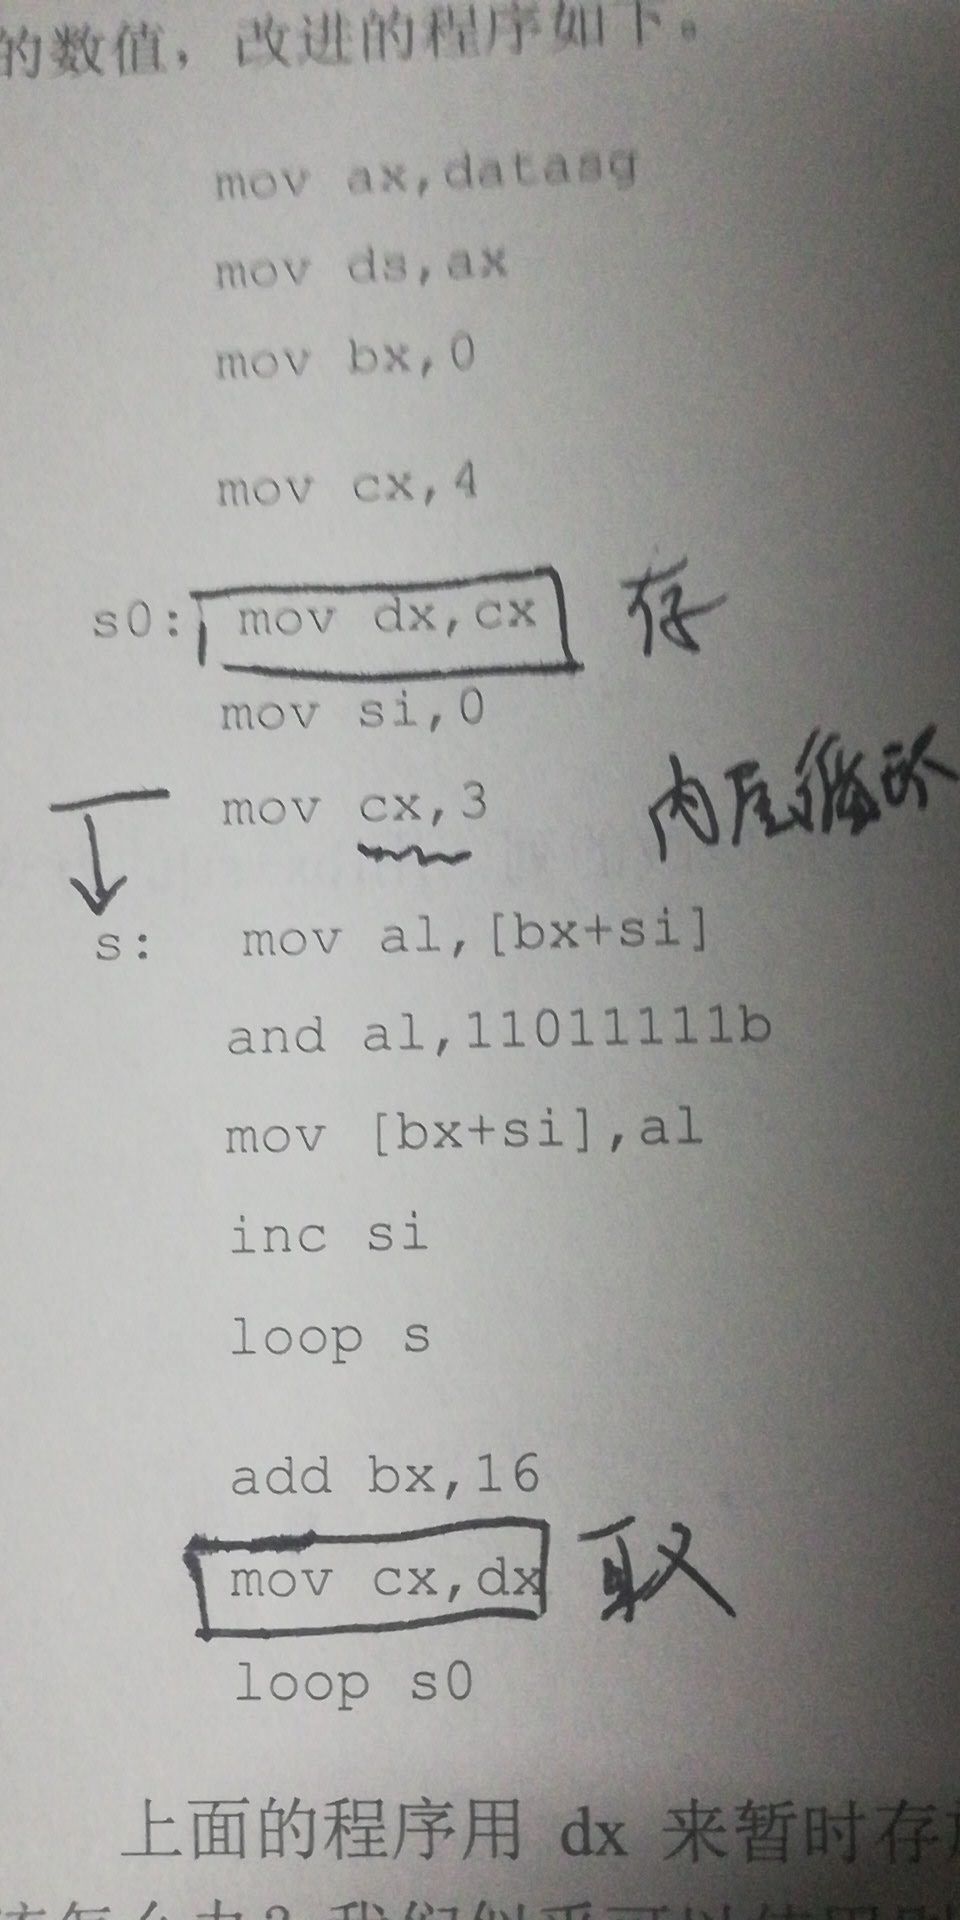 的数值，改进的程序如下。
mov ax,datasg
mov ds,ax
mov bx,0
mov cx,4
s0: mov dx,cx 存
mov si,0
mov cx,3 内层循环
s: mov al,[bx+si]
and al,11011111b
mov [bx+si],al
inc si
loop s
add bx,16
mov cx,dx 取
loop s0
上面的程序用 dx 来暂时存
怎么办？我们似乎可以使用